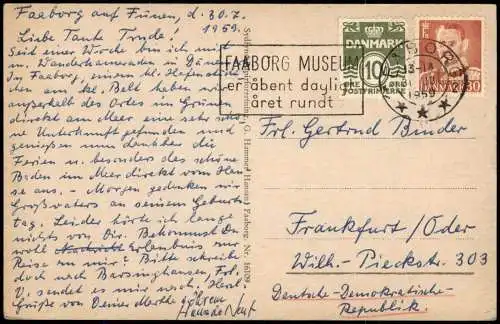 Faaborg auf Fünen, d. 30.7.
1959.
Liebe Tante Trude!
Seit einer Woche bin ich mit
m. Wanderkameraden in Dänemark
In Faaborg, einem kl. Hafenstädtchen
am kl. Belt haben wir
ausserhalb des Ortes im Grünen
direkt am Meer eine sehr schöne
Unterkunft gefunden und
genießen nun die
Ferien u. besonders das schöne
Baden im Meer direkt vom Hause
aus. - Morgen gedenken wir
Großvaters an seinem Geburtstag.
Leider hörte ich lange
nichts von Dir. Bekommst Du
wohl Erlaubnis zur
Reise zu mir? Bitte schreibe
doch nach Barsinghausen, Frl.
V. sendet es mir nach. Herzl.
Grüße von Deiner Merthe
Hammer Hansen) Faaborg. Nr. 16109
FAABORG MUSEUM
er åbent daglig
året rundt
DANMARK
10
ØRE
POSTFRIM
BORG
DANMARK
30
Frl. Gertrud Binder
Frankfurt/Oder
Wilh.-Pieckstr. 303
Deutsche-Demokratische-
Republik.